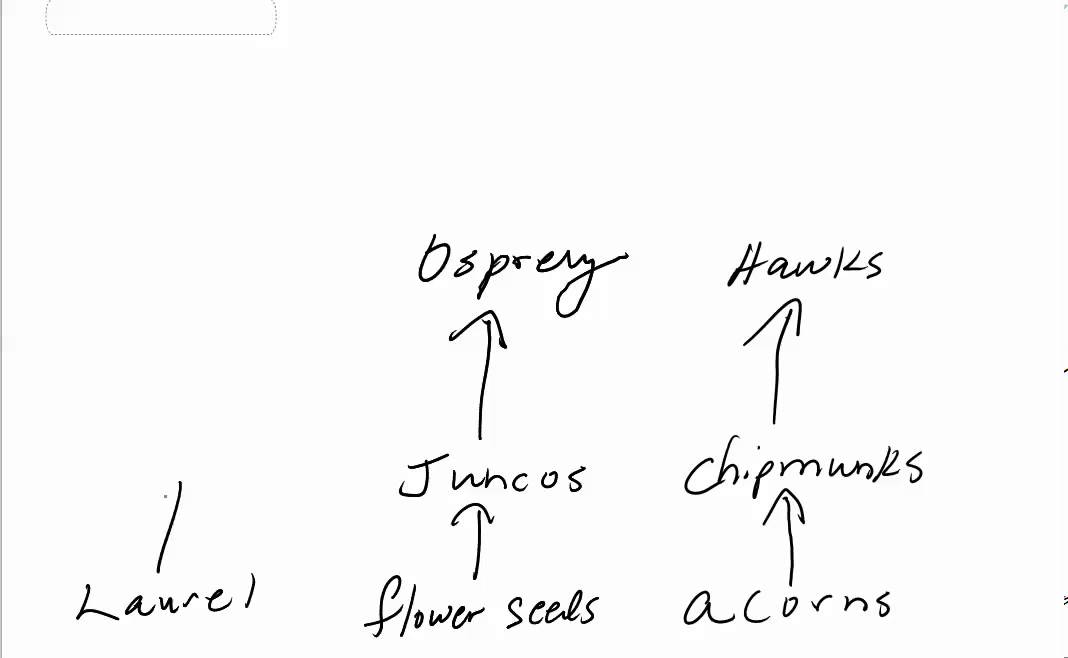 Osprery Hawks
Juncos Chipmunks
Laurel flower seeds acorns